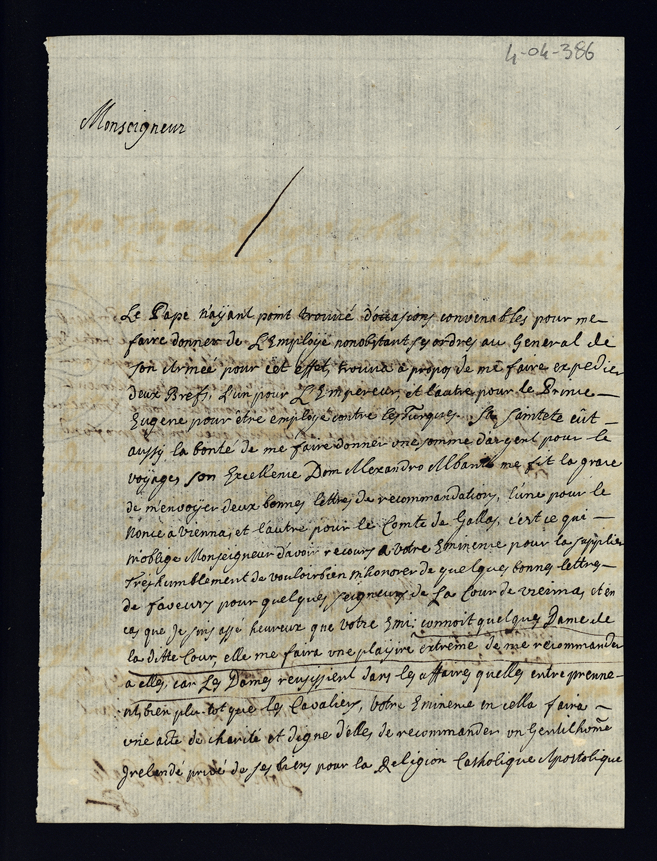 4-04-386
Monseigneur
Le Pape n'ayant point trouvé d'occasions convenables pour me
faire donner de L'Employe nonobstant ses ordres au General de
son Armée pour cet effet, trouva a propos de me faire expedier
deux Brefs, L'un pour L'Empereur, et l'autre pour le Prince
Eugene pour etre employé contre les Turques. Sa Saintete eût
aussi la bonté de me faire donner une somme d'argent pour le
voyage, son Excellence Dom Alexandro Albani me fit la grace
de m'envoyer deux bonnes lettres de recommandation, l'une pour le
Nonce a Vienna, et l'autre pour le Comte de Gallas, c'est ce qui
m'oblige Monseigneur d'avoir recours a votre Eminence pour la supplier
Tres humblement de vouloir bien m'honorer de quelques bonnes lettres
de faveurs pour quelques seigneurs de La Cour de vienna, et en
cas que Je sois assé heureux que Votre Emi: connoit quelques Dame de
la ditte Cour, elle me faira une plaisire extrême de me recommander
a elles, car Les Dames reusissent dans les affaires quelles entreprenne-
nt, bien plu-tot que les Cavaliers, Votre Eminence en cella faira
une acte de charite et digne d'elles de recommander un Gentilhome
Irelandé privé de ses biens pour la Religion Catholique Apostolique